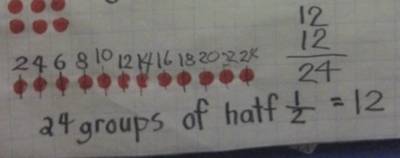 12
12
24
2 4 6 8 10 12 14 16 18 20 22 24
24 groups of half 1/2 = 12